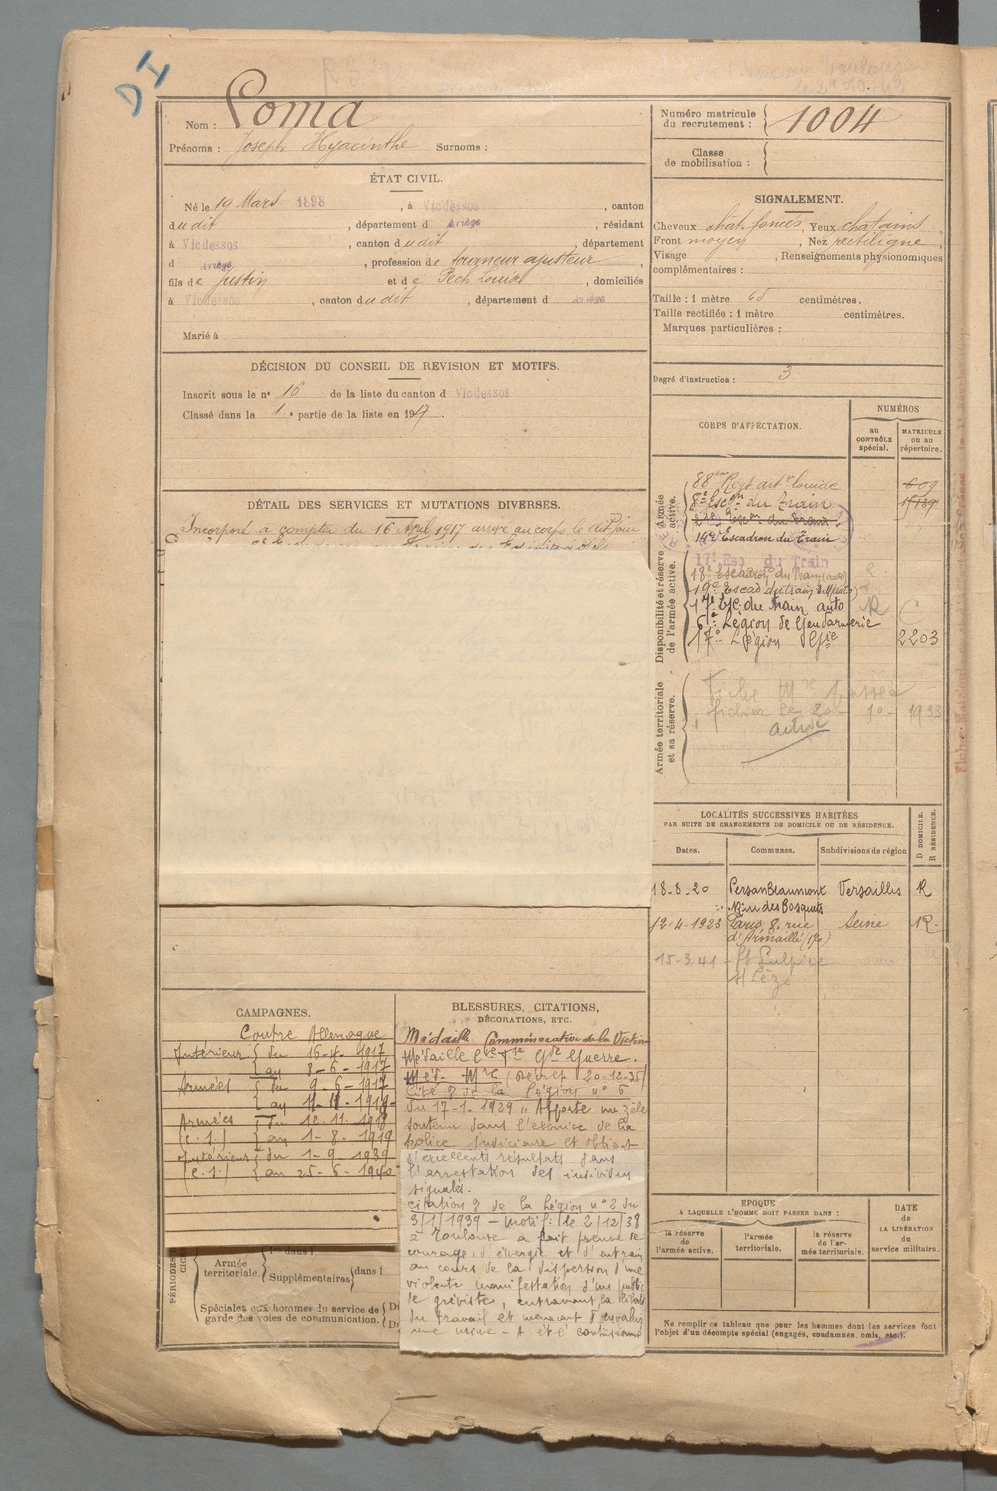 Nom : Loma
Prénoms : Joseph Hyacinthe Surnoms :
ÉTAT CIVIL.
Né le 19 Mars 1898, à Vicdessos, canton
dudit, département d Ariège, résidant
à Vicdessos, canton dudit, département
d Ariège, profession de tourneur ajusteur
fils de Justin et de Pech Louise, domiciliés
à Vicdessos, canton dudit, département d Ariège
Marié à
DÉCISION DU CONSEIL DE REVISION ET MOTIFS.
Inscrit sous le n° 16 de la liste du canton d Vicdessos
Classé dans la 1e partie de la liste en 1917.
DÉTAIL DES SERVICES ET MUTATIONS DIVERSES.
Incorporé à compter du 16 Avril 1917 arrivé au corps le dit jour
CAMPAGNES.
Contre Allemagne
Intérieur { du 16-4-1917
au 8-6-1917
Armées { du 9-6-1917
au 11-11-1918
Armées { du 12-11-1918
(C.S.) au 1-8-1919
Intérieur { du 1-9-1939
(C.S.) { au 25-6-1940
PÉRIODES
Armée territoriale.
1re dans l
Supplémentaires dans l
Spéciales aux hommes du service de
garde des voies de communication.
BLESSURES, CITATIONS,
DÉCORATIONS, ETC.
Médaille Commémorative de la Victoire
Médaille Cve Fse Gde Guerre.
Méd. Mre (Décret 20-12-35)
Cité O de la Légion n° 6
du 17-1-1929 " Apporte un zèle
soutenu dans l'exercice de la
police judiciaire et obtient
d'excellents résultats dans
l'arrestation des individus
signalés.
Citation O de la Légion n° 2 du
3/1/1939 - Motif : le 2/12/38
à Toulouse a fait preuve de
courage, d'énergie et d'entrain
au cours de la dispersion d'une
violente manifestation d'un public
de grévistes, entravant la liberté
du travail et menaçant d'envahir
une usine - A été contusionné
Numéro matricule
du recrutement : 1004
Classe
de mobilisation :
SIGNALEMENT.
Cheveux chat. foncés, Yeux chatains,
Front moyen, Nez rectiligne,
Visage, Renseignements physionomiques
complémentaires :
Taille : 1 mètre 65 centimètres.
Taille rectifiée : 1 mètre centimètres.
Marques particulières :
Degré d'instruction : 3
CORPS D'AFFECTATION.
NUMÉROS
AU CONTRÔLE spécial.
MATRICULE OU AU répertoire.
Armée active.
88me Régt art. lourde 609
8e Escon du Train
19e Escadron du Train
17e Esc. du Train
Disponibilité et réserve de l'armée active.
18e Escadron du Train (auto) R
19e Escad du train
17e Esc du Train auto R C
6e Légion de Gendarmerie
17e Légion Gie 2203
Armée territoriale et sa réserve.
Fiche Mre passée
fichier le 20-10-1933
active
LOCALITÉS SUCCESSIVES HABITÉES
PAR SUITE DE CHANGEMENTS DE DOMICILE OU DE RÉSIDENCE.
Dates. Communes. Subdivisions de région D DOMICILE. R RÉSIDENCE.
18-8-20 Persan Beaumont Versailles R
rue des Bosquets
12-4-1923 Paris, 8, rue Seine R.
d'Armaillé (17e)
15-3-41 St Sulpice
s/ Lèze
EPOQUE
A LAQUELLE L'HOMME DOIT PASSER DANS :
la réserve de l'armée active.
l'armée territoriale.
la réserve de l'armée territoriale.
DATE de LA LIBÉRATION du service militaire.
Ne remplir ce tableau que pour les hommes dont les services font
l'objet d'un décompte spécial (engagés, condamnés, omis, etc.).